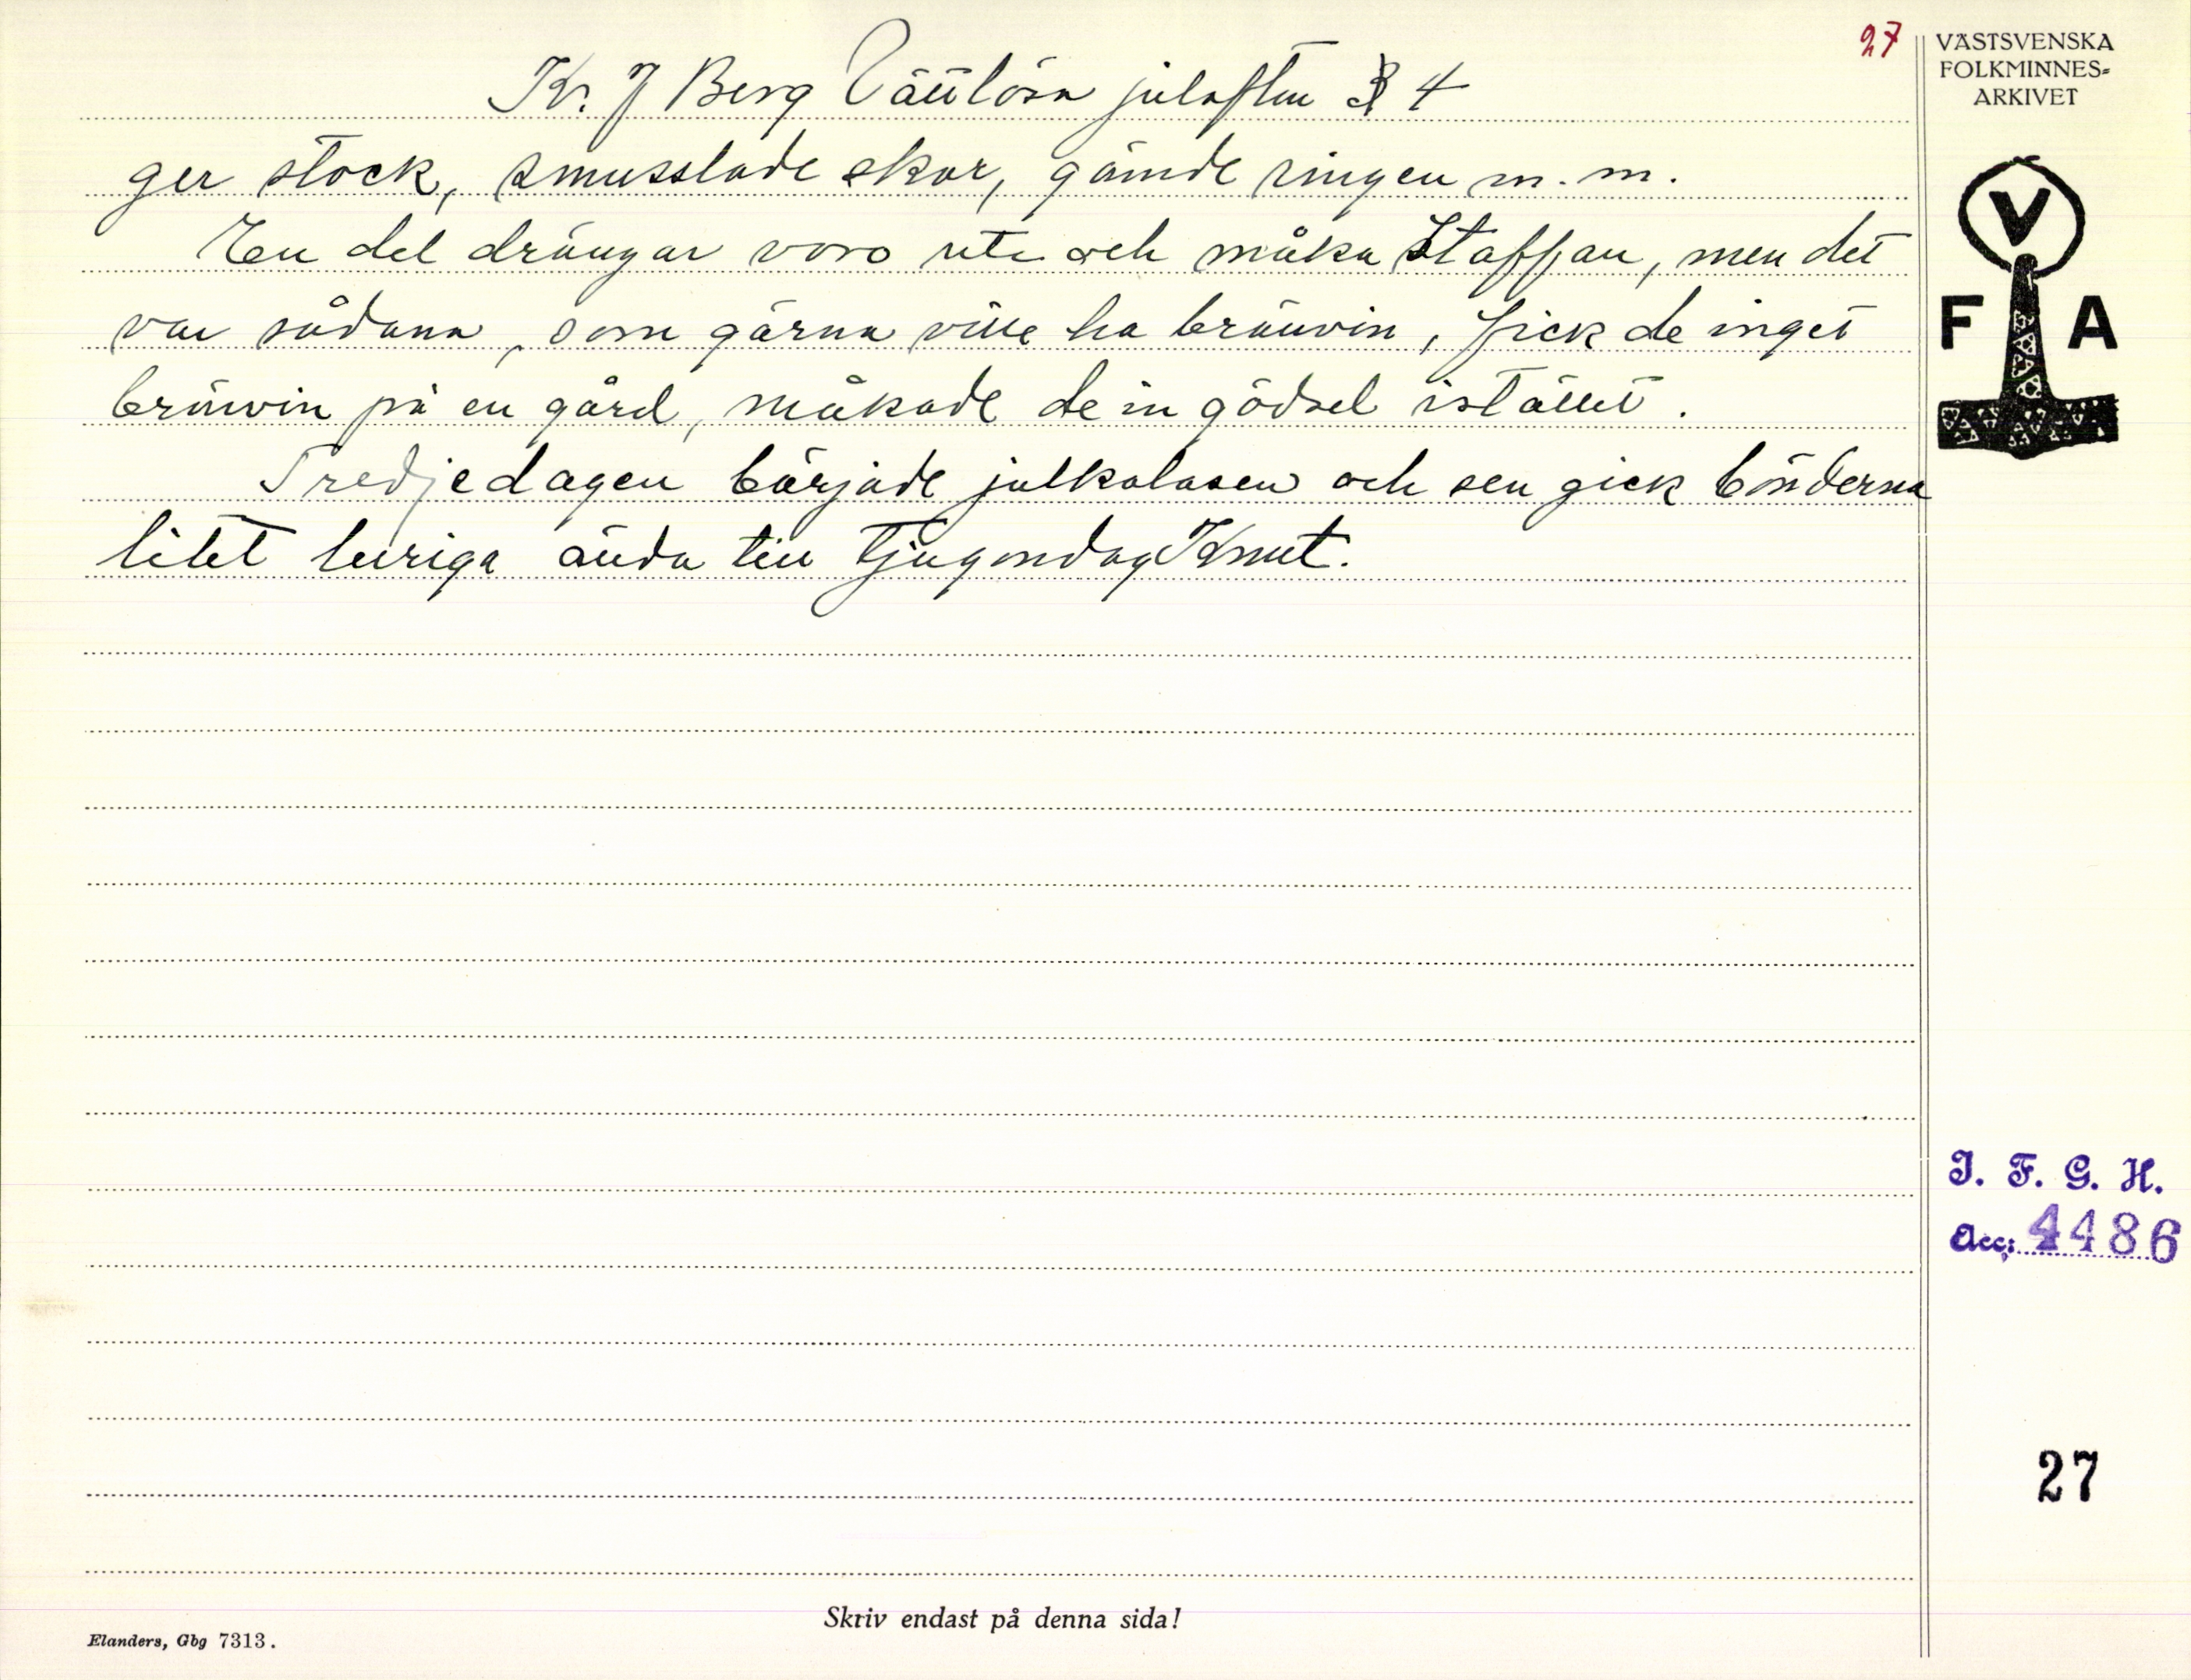 27
VÄSTSVENSKA
FOLKMINNES-
ARKIVET
Kr. J Berg Vättlösa julafton 4
ger stock, smusslade skor, gämde ringen m. m.
En del drängar voro ute och måka Staffan, men det
var sådana, som gärna ville ha brännvin, fick de inget
brännvin på en gård, måkade de in gödsel istället.
Tredjedagen började julkalasen och sen gick bönderna
litet luriga ända till Tjugondag Knut.
V
F A
I. F. G. H.
Acc; 4486
27
Skriv endast på denna sida!
Elanders, Gbg 7313.